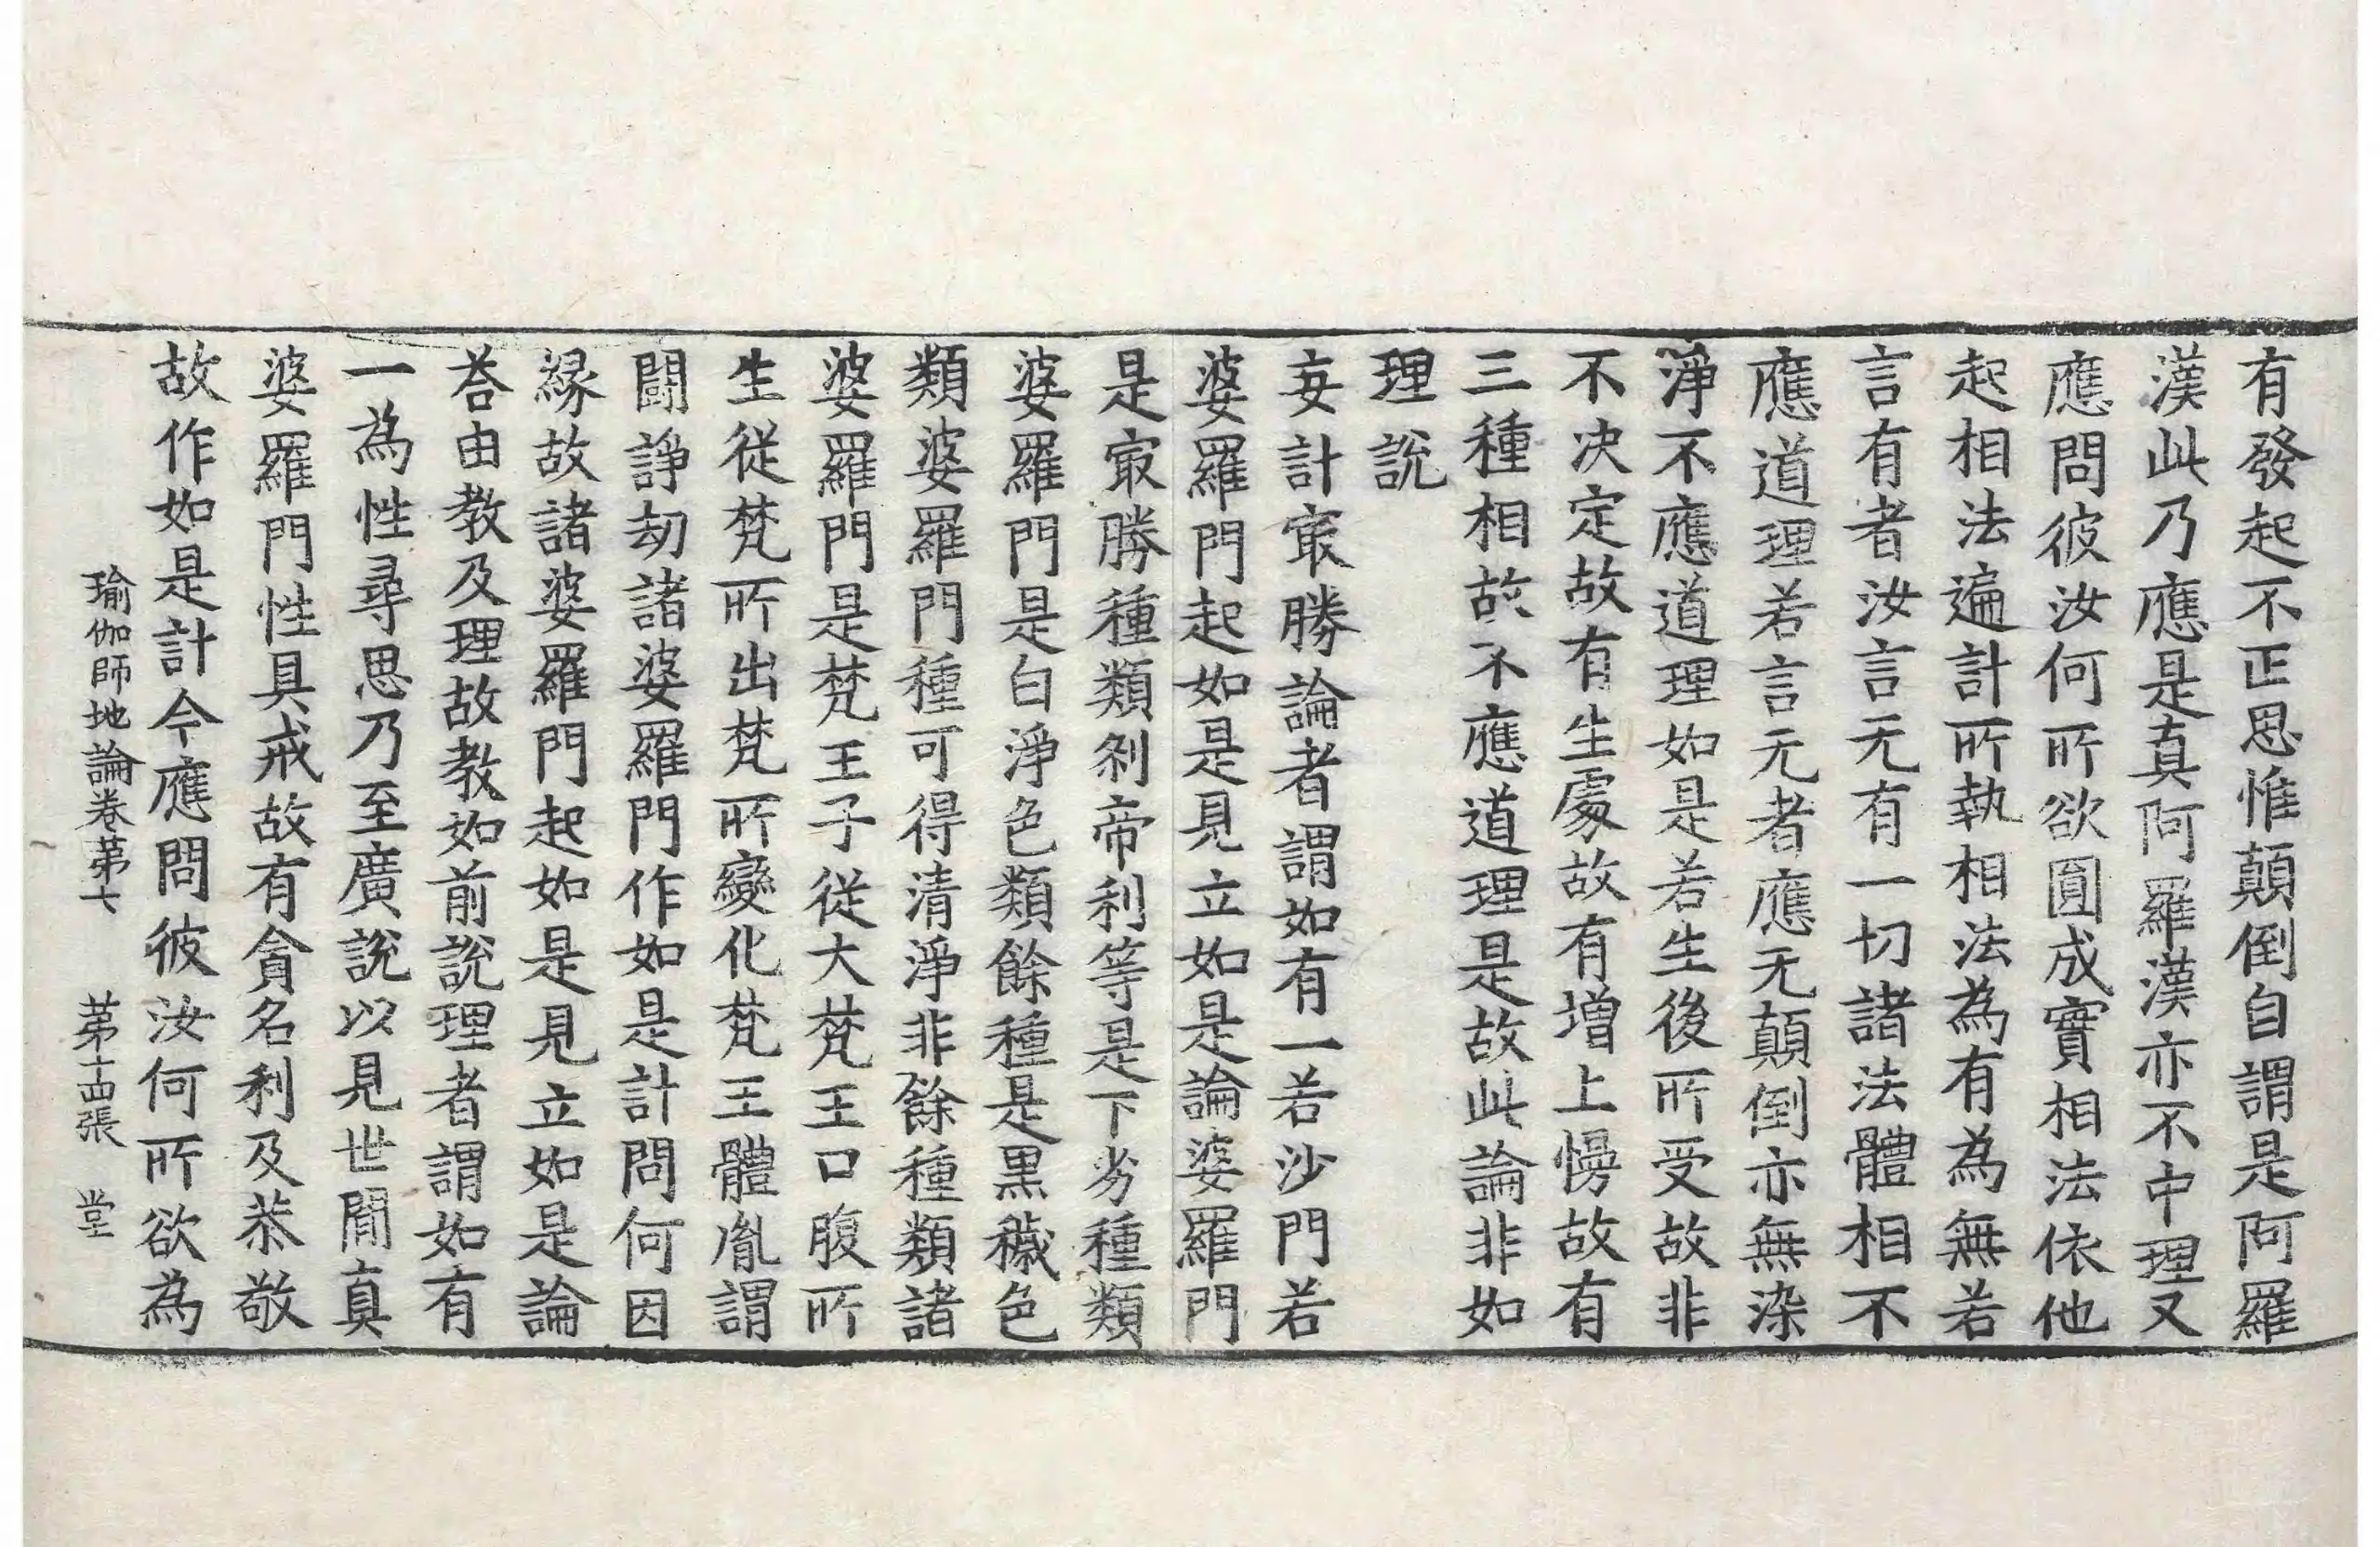 有發起不正思惟顛倒自謂是阿羅
漢此乃應是真阿羅漢亦不中理又
應問彼汝何所欲圓成實相法依他
起相法遍計所執相法為有為無若
言有者汝言无有一切諸法體相不
應道理若言无者應无顛倒亦無染
淨不應道理如是若生後所受故非
不决定故有生處故有增上慢故有
三種相故不應道理是故此論非如
理說
妄計㝡勝論者謂如有一若沙門若
婆羅門起如是見立如是論婆羅門
是㝡勝種類刹帝利等是下劣種類
婆羅門是白淨色類餘種是黒穢色
類婆羅門種可得清淨非餘種類諸
婆羅門是梵王子從大梵王口腹所
生從梵所出梵所變化梵王體胤謂
鬪諍劫諸婆羅門作如是計問何因
緣故諸婆羅門起如是見立如是論
荅由教及理故教如前說理者謂如有
一為性尋思乃至廣說以見世間真
婆羅門性具戒故有貪名利及恭敬
故作如是計今應問彼汝何所欲為
瑜伽師地論卷苐七 苐十四張 堂